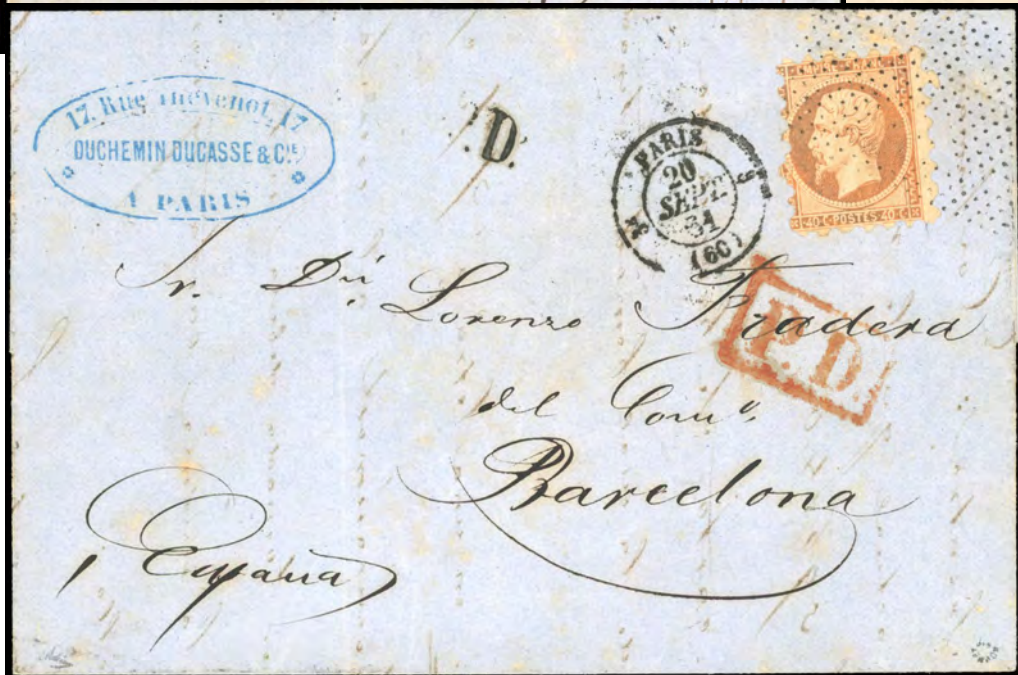 17. Rue Thévenot, 17
DUCHEMIN DUCASSE & CIE
A PARIS
.D.
PARIS
20
SEPT.
61
(60)
EMPIRE FRANC
40 C POSTES 40 C
Sr. Dn Lorenzo Pradera
P.D.
del Como.
Barcelona
España